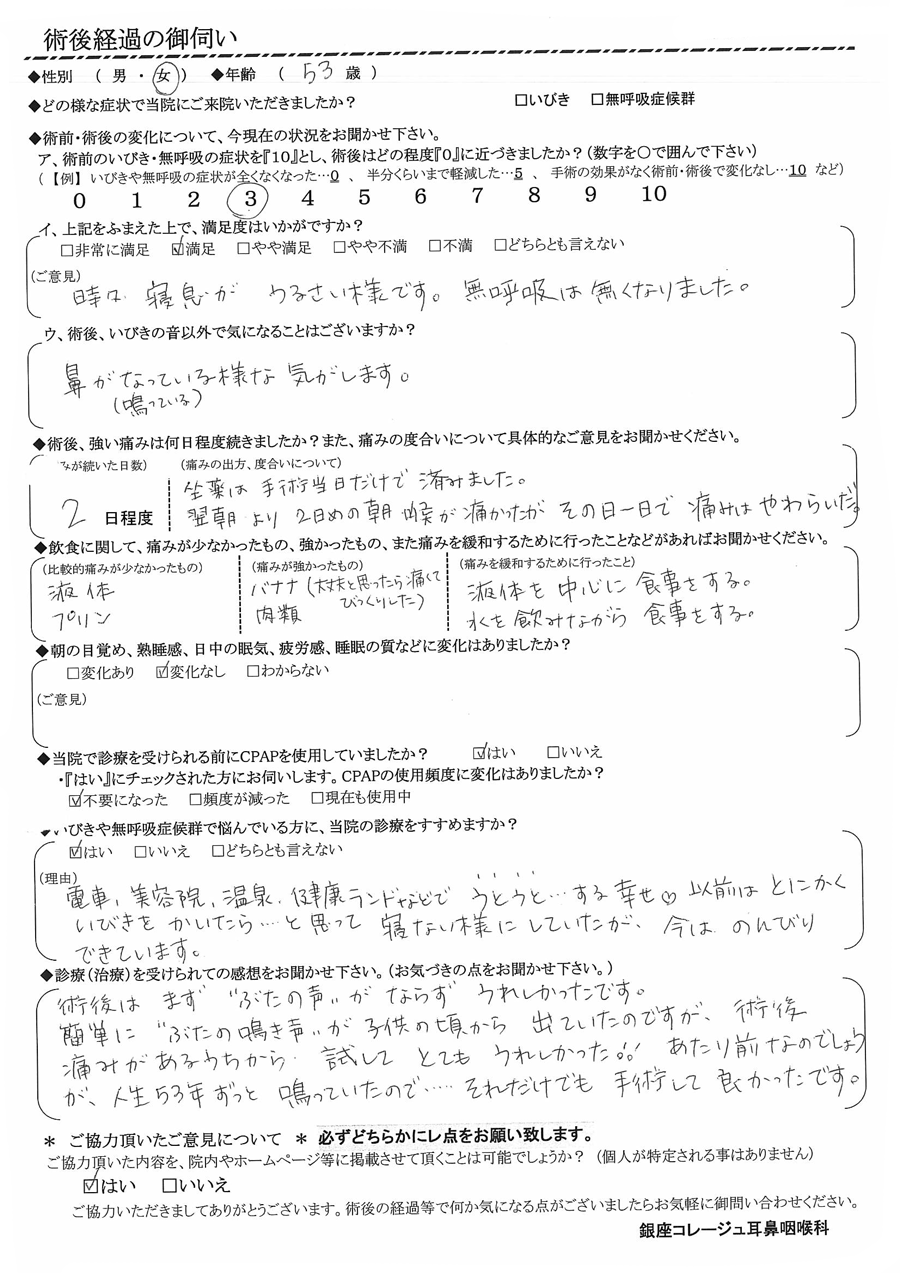 術後経過の御伺い
◆性別 （ 男 ・ 女 ） ◆年齢 （ 53 歳 ）
◆どの様な症状で当院にご来院いただきましたか？ □いびき □無呼吸症候群
◆術前・術後の変化について、今現在の状況をお聞かせ下さい。
ア、術前のいびき・無呼吸の症状を『10』とし、術後はどの程度『0』に近づきましたか？（数字を○で囲んで下さい）
（【例】 いびきや無呼吸の症状が全くなくなった…0 、 半分くらいまで軽減した…5 、 手術の効果がなく術前・術後で変化なし…10 など）
0 1 2 3 4 5 6 7 8 9 10
イ、上記をふまえた上で、満足度はいかがですか？
□非常に満足 ☑満足 □やや満足 □やや不満 □不満 □どちらとも言えない
（ご意見）
時々 寝息が うるさい様です。 無呼吸は無くなりました。
ウ、術後、いびきの音以外で気になることはございますか？
鼻がなっている様な 気がします。
（鳴っている）
◆術後、強い痛みは何日程度続きましたか？また、痛みの度合いについて具体的なご意見をお聞かせください。
みが続いた日数） （痛みの出方、度合いについて）
坐薬は 手術当日だけで 済みました。
2 日程度 翌朝より 2日めの朝 喉が痛かったが その日一日で 痛みは やわらいだ。
◆飲食に関して、痛みが少なかったもの、強かったもの、また痛みを緩和するために行ったことなどがあればお聞かせください。
（比較的痛みが少なかったもの） （痛みが強かったもの） （痛みを緩和するために行ったこと）
液体 バナナ（大丈夫と思ったら痛くて 液体を 中心に 食事をする。
プリン 肉類 びっくりした） 水を飲みながら 食事をする。
◆朝の目覚め、熟睡感、日中の眠気、疲労感、睡眠の質などに変化はありましたか？
□変化あり ☑変化なし □わからない
（ご意見）
◆当院で診療を受けられる前にCPAPを使用していましたか？ ☑はい □いいえ
・『はい』にチェックされた方にお伺いします。CPAPの使用頻度に変化はありましたか？
☑不要になった □頻度が減った □現在も使用中
いびきや無呼吸症候群で悩んでいる方に、当院の診療をすすめますか？
☑はい □いいえ □どちらとも言えない
（理由）
電車、美容院、温泉、健康ランドなどで うとうと…する幸せ♡ 以前は とにかく
いびきを かいたら…と思って 寝ない様にしていたが、今は のんびり
できています。
◆診療（治療）を受けられての感想をお聞かせ下さい。（お気づきの点をお聞かせ下さい。）
術後は まず “ぶたの声”が ならず うれしかったです。
簡単に “ぶたの鳴き声”が 子供の頃から 出ていたのですが、術後
痛みがあるうちから 試して とても うれしかった!! あたり前なのでしょう
が、人生53年ずっと 鳴っていたので…… それだけでも 手術して 良かったです。
＊ ご協力頂いたご意見について ＊ 必ずどちらかにレ点をお願い致します。
ご協力頂いた内容を、院内やホームページ等に掲載させて頂くことは可能でしょうか？ （個人が特定される事はありません）
☑はい □いいえ
ご協力いただきましてありがとうございます。術後の経過等で何か気になる点がございましたらお気軽に御問い合わせください。
銀座コレージュ耳鼻咽喉科